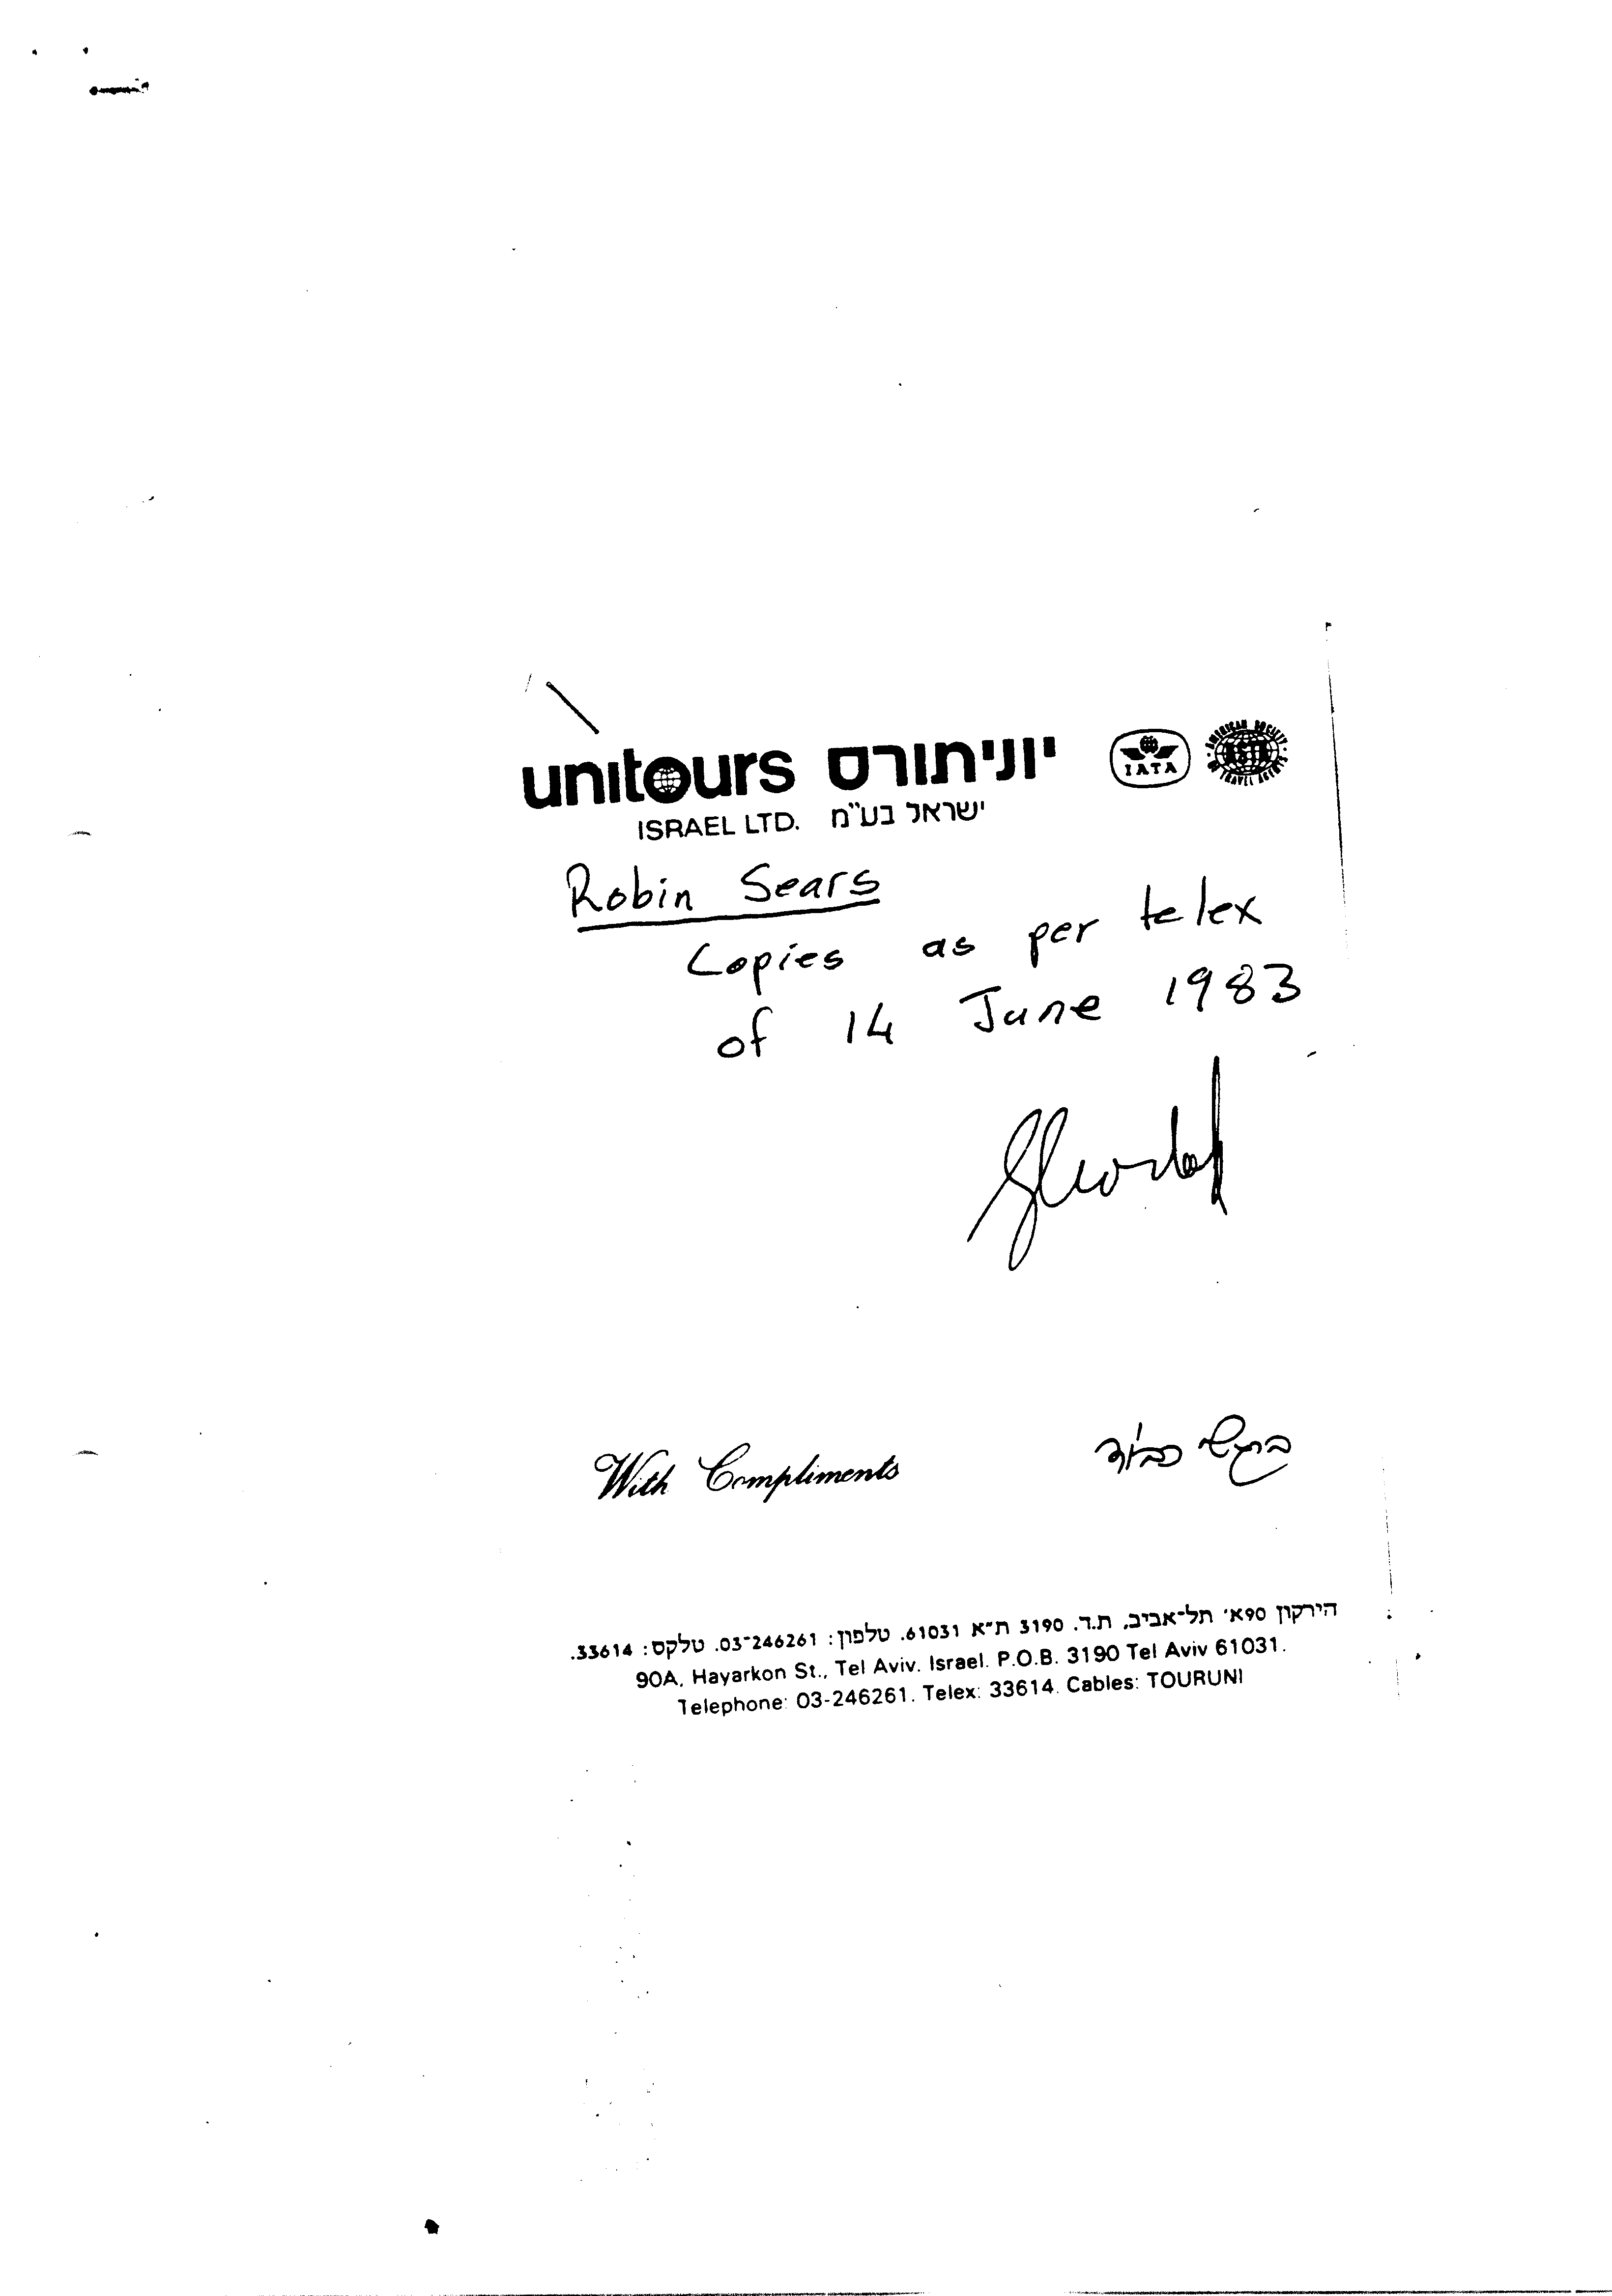 unitours יוניתורס IATA AMERICAN SOCIETY OF TRAVEL AGENTS ASTA
ISRAEL LTD. ישראל בע"מ
Robin Sears
Copies as per telex
of 14 June 1983
With Compliments ברגשי כבוד
הירקון 90א' תל-אביב, ת.ד. 3190 ת"א 61031. טלפון: 03-246261. טלקס: 33614.
90A, Hayarkon St., Tel Aviv. Israel. P.O.B. 3190 Tel Aviv 61031.
Telephone: 03-246261. Telex: 33614. Cables: TOURUNI